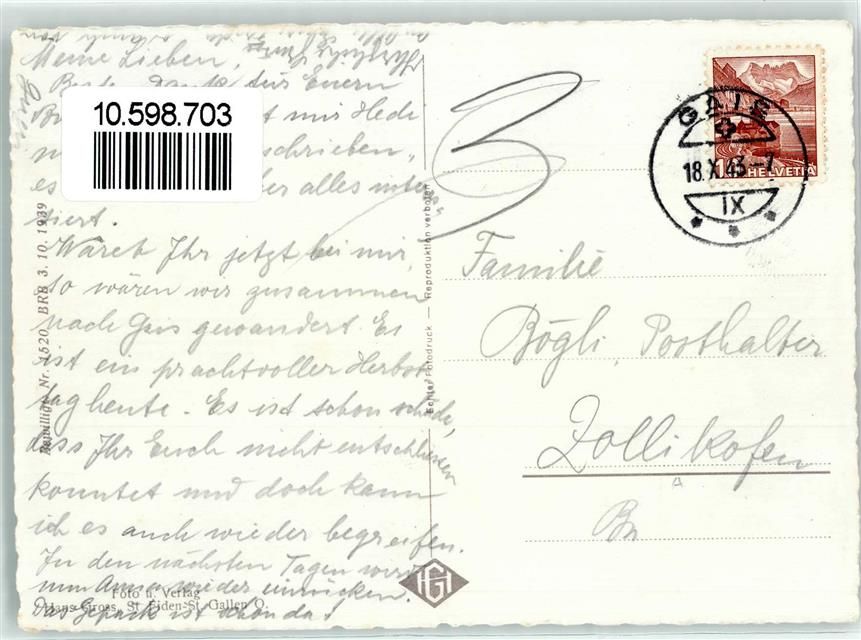 Meine Lieben,
Besten Dank für Euern
Hedi
schrieben,
es alles inter
siert.
Wäret Ihr jetzt bei mir,
so wären wir zusammen
nach Gais gewandert. Es
ist ein prachtvoller Herbst
tag heute. Es ist schon schade,
dass Ihr Euch nicht entschliessen
konntet und doch kann
ich es auch wieder begreifen.
In den nächsten Tagen wird
nun Anna wieder einrücken.
Das Gepäck ist schon da!
10.598.703
Bewilligt Nr. 1520 BRB 3. 10. 1939
Foto u. Verlag
Hans Gross, St. Fiden-St. Gallen O.
Echter Fotodruck — Reproduktion verboten
HG
3
GAIS
18.X.43-7
IX
10 HELVETIA
Familie
Bögli, Posthalter
Zollikofen
Bn